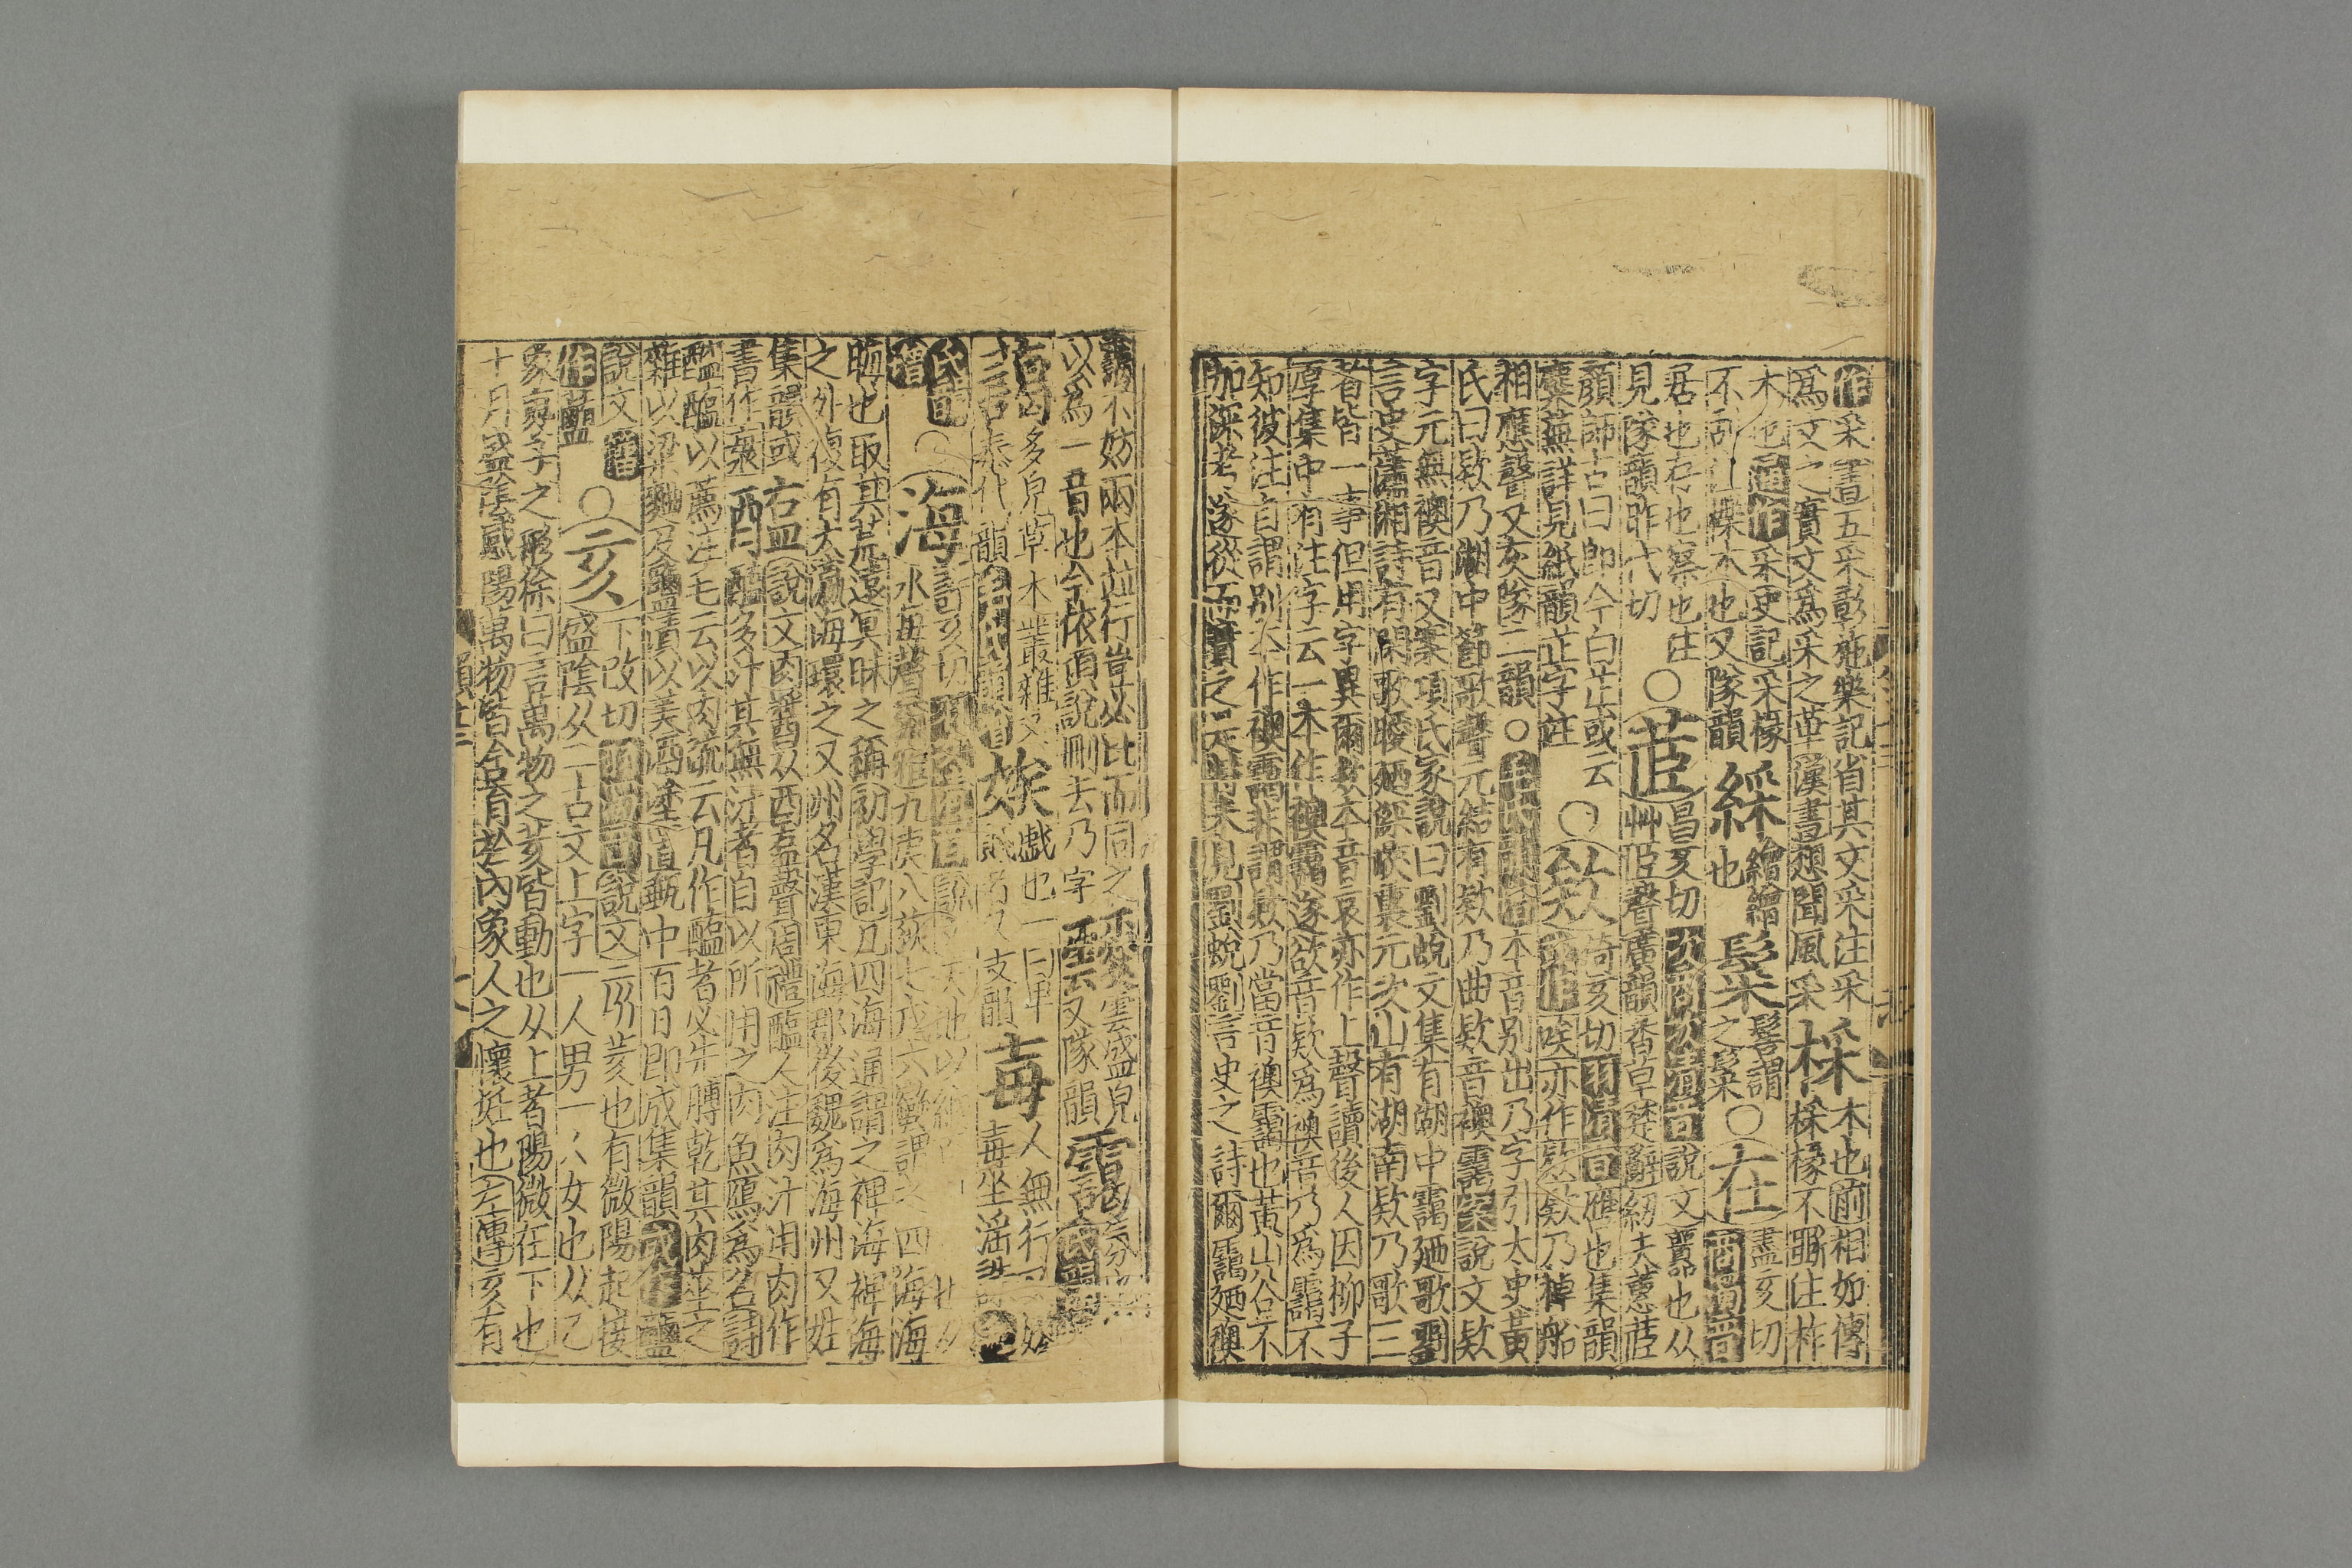 作采書五采彰施樂記省其文采注采
爲文之實文爲采之華漢書想聞風采
採
木也前相如傳
採椽不斲注柞
木也通作采史記采椽
不刮注櫟木也又隊韻
綵
繒繒
也
髹
髻謂
之髹
○在
盡亥切
商濁音
居也存也察也注
見隊韻昨代切
○茝
昌亥切次商次清音說文虈也从
艸𦣞聲廣韻香草楚辭紉夫蕙茝
顔師古曰即今白芷或云
蘪蕪詳見紙韻芷字註
○欸
倚亥切羽清音應也集韻
或作唉亦作欸欸乃棹船
相應聲又灰隊二韻○毛氏韻增本音别出乃字引太史黃
氏曰欸乃湖中節歌聲元結有欸乃曲欸音襖靄案說文欸
字元無襖音又案項氏家說曰劉蛻文集有湖中靄廼歌劉
言史瀟湘詩有閑歌曖廼深峽裏元次山有湖南欸乃歌三
者皆一事但用字異爾欸本音哀亦作上聲讀後人因柳子
厚集中有注字云一本作襖靄遂欲音欸爲襖音乃爲靄不
知彼注自謂别本作襖靄非謂欸乃當音襖靄也黃山谷不
加深考遂從而實之天時未見劉蛻劉言史之詩爾靄廼襖
靄不妨兩本並行豈必比而同之
以爲一音也今依項說刪去乃字
靉
雲盛皃
又隊韻
靄
氏韻
多皃草木叢雜又
泰代韻毛氏韻增
娭
戱也一曰卑
賤名又支韻
毐
人無行
毐坐淫
氏韻
增
○海
許亥切
水每聲爾雅九夷八狄七戎六蠻謂之四海海
晦也取其荒遠冥昧之稱初學記凡四海通謂之裨海裨海
之外復有大瀛海環之又州名漢東海郡後魏爲海州又姓
集韻或
書作𣴴
醢
說文肉醬酉从酉𥁓聲周禮醢人注肉汁用肉作
醢醯多汁其無汁者自以所用之肉魚鴈爲名詩
醓醢以薦注毛云以肉疏云凡作醢者必先膊乾其肉莝之
雜以梁麴及鹽漬以美酒塗置甀中百日即成集韻或作䀋
說文
作䕣
○亥
下改切
說文亥荄也有微陽起接
盛陰从二古文上字一人男一人女也从乙
象褱子之形徐曰言萬物之荄皆動也从上者陽微在下也
十月盛陰感陽萬物皆含育於內象人之懷妊也左傳亥有